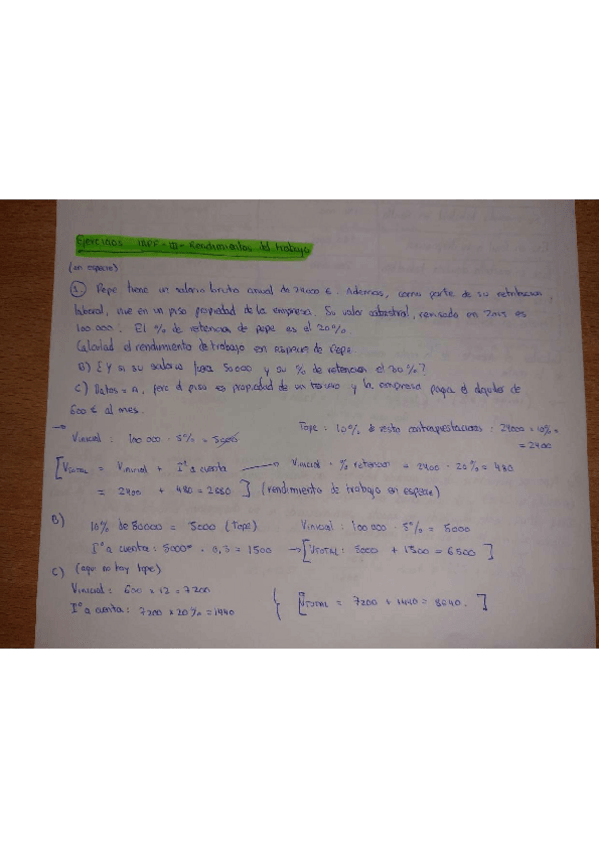 Ejercicios IRPF - III - Rendimientos del trabajo
(en especie)
1. Pepe tiene un salario bruto anual de 24000 €. Ademas, como parte de su retribucion
laboral, vive en un piso propiedad de la empresa. Su valor catastral, revisado en 2005 es
100 000. El % de retencion de pepe es el 20%
Calculad el rendimiento de trabajo en especie de Pepe
B) ¿Y si su salario fuera 50000 y su % de retencion el 30%?
C) Datos = A, pero el piso es propiedad de un tercero y la empresa paga el alquiler de
600 € al mes.
→ Vinicial: 100 000 · 5% = 5000 Tope = 10% resto contraprestaciones: 24000 × 10% =
= 2400
[VTOTAL = Vinicial + Iº a cuenta → Vinicial · % retencion → 2400 · 20% = 480
= 2400 + 480 = 2880 ] (rendimiento de trabajo en especie)
B) 10% de 50000 = 5000 (Tope) Vinicial: 100 000 · 5% = 5000
Iº a cuenta: 5000 · 0,3 = 1500 → [VTOTAL: 5000 + 1500 = 6500 ]
C) (aqui no hay tope)
Vinicial: 600 × 12 = 7200
Iº a cuenta: 7200 × 20% = 1440 { [VTOTAL = 7200 + 1440 = 8640. ]